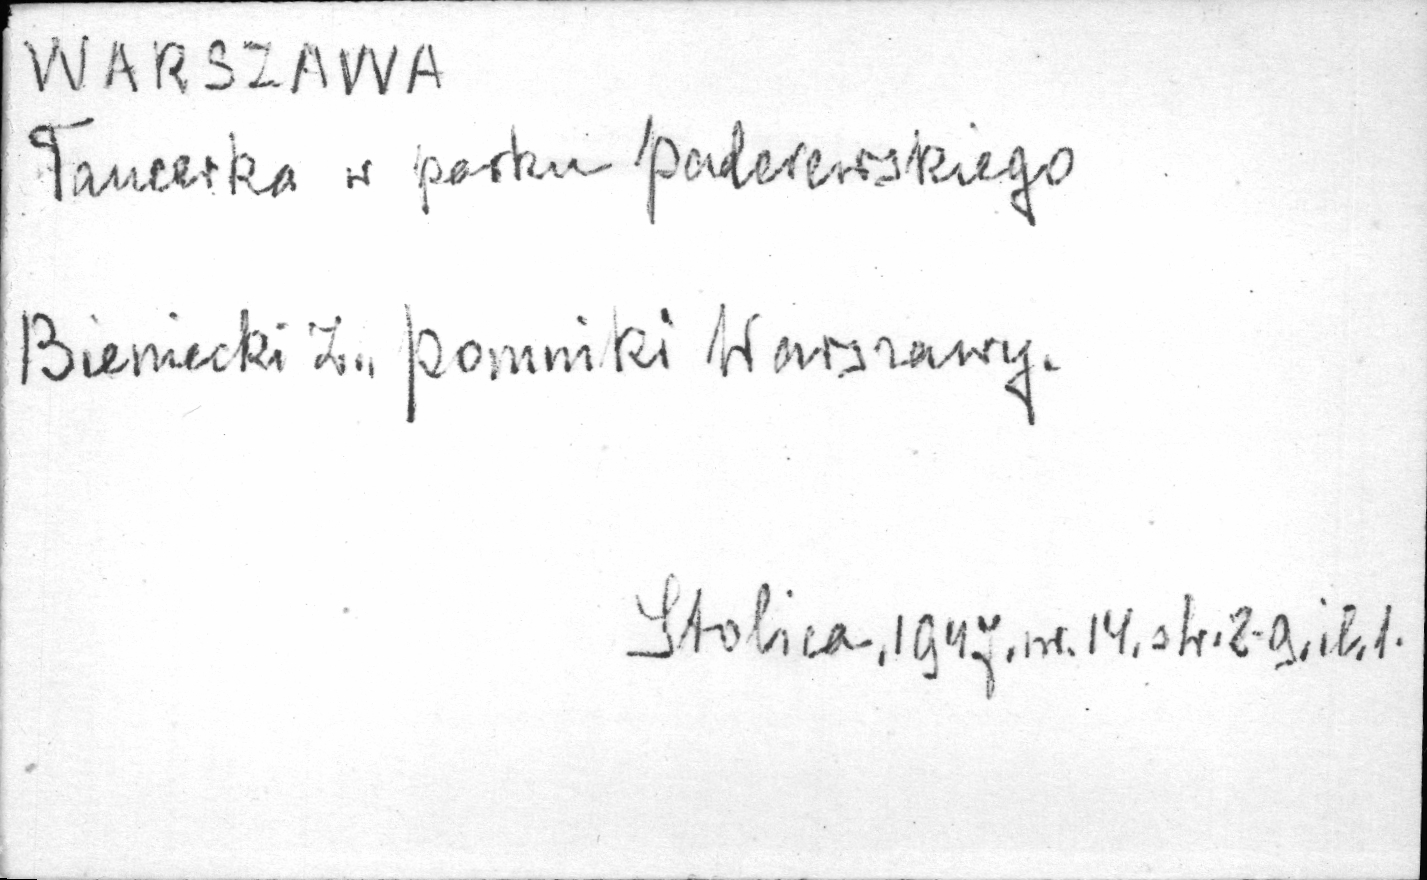 WARSZAWA
Tancerka w parku Paderewskiego
Bieniecki Z., Pomniki Warszawy.
Stolica, 1947, nr. 14, str. 2-9, il. 1.